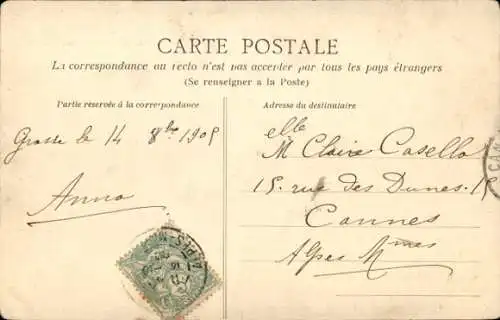 CARTE POSTALE
La correspondance au recto n'est pas acceptée par tous les pays étrangers
(Se renseigner à la Poste)
Partie réservée à la correspondance
Adresse du destinataire
Grasse le 14 8bre 1905
Anna
Melle Claire Casella
15 rue des Dunes 15
Cannes
Alpes Mmes
ALPES-M
CAN